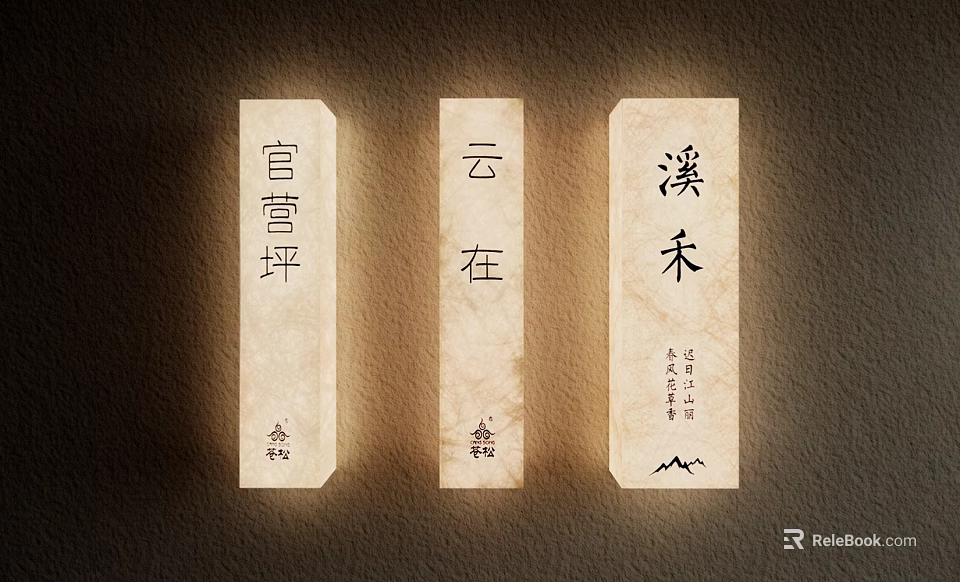 官营坪
CANG SONG
苍松
云在
CANG SONG
苍松
溪禾
迟日江山丽
春风花草香
ReleBook.com